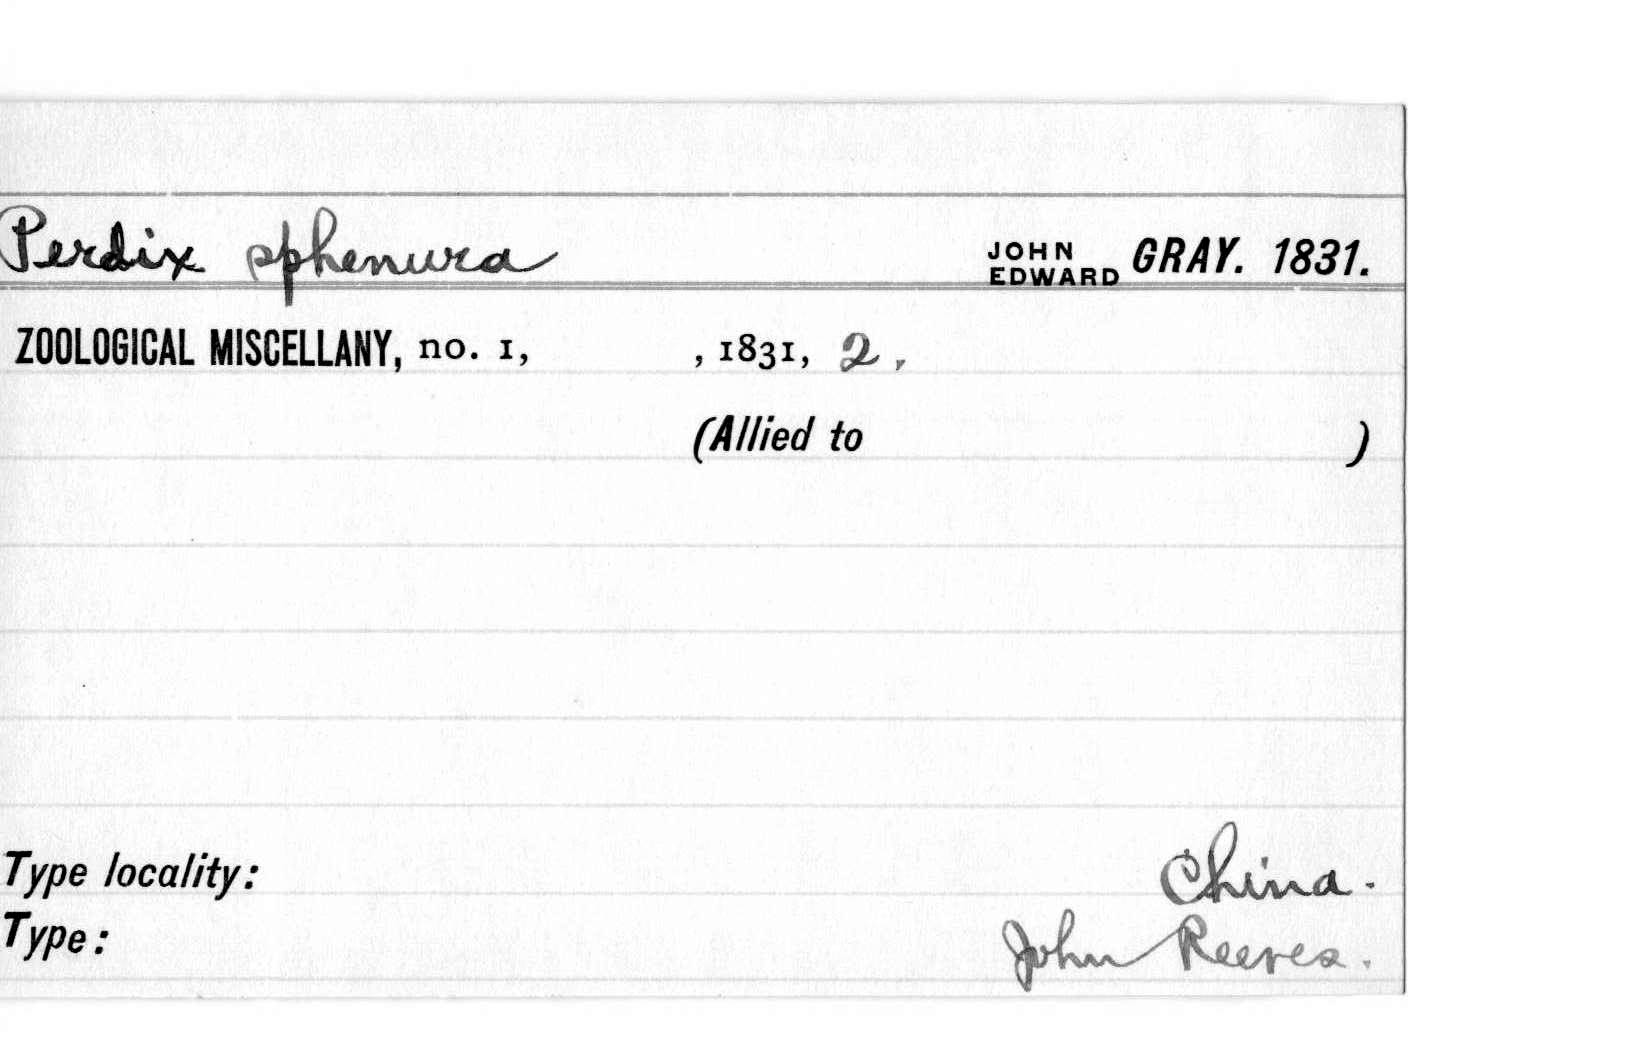 Perdix sphenura JOHN EDWARD GRAY. 1831.
ZOOLOGICAL MISCELLANY, no. 1, , 1831, 2.
(Allied to )
Type locality: China.
Type: John Reeves.